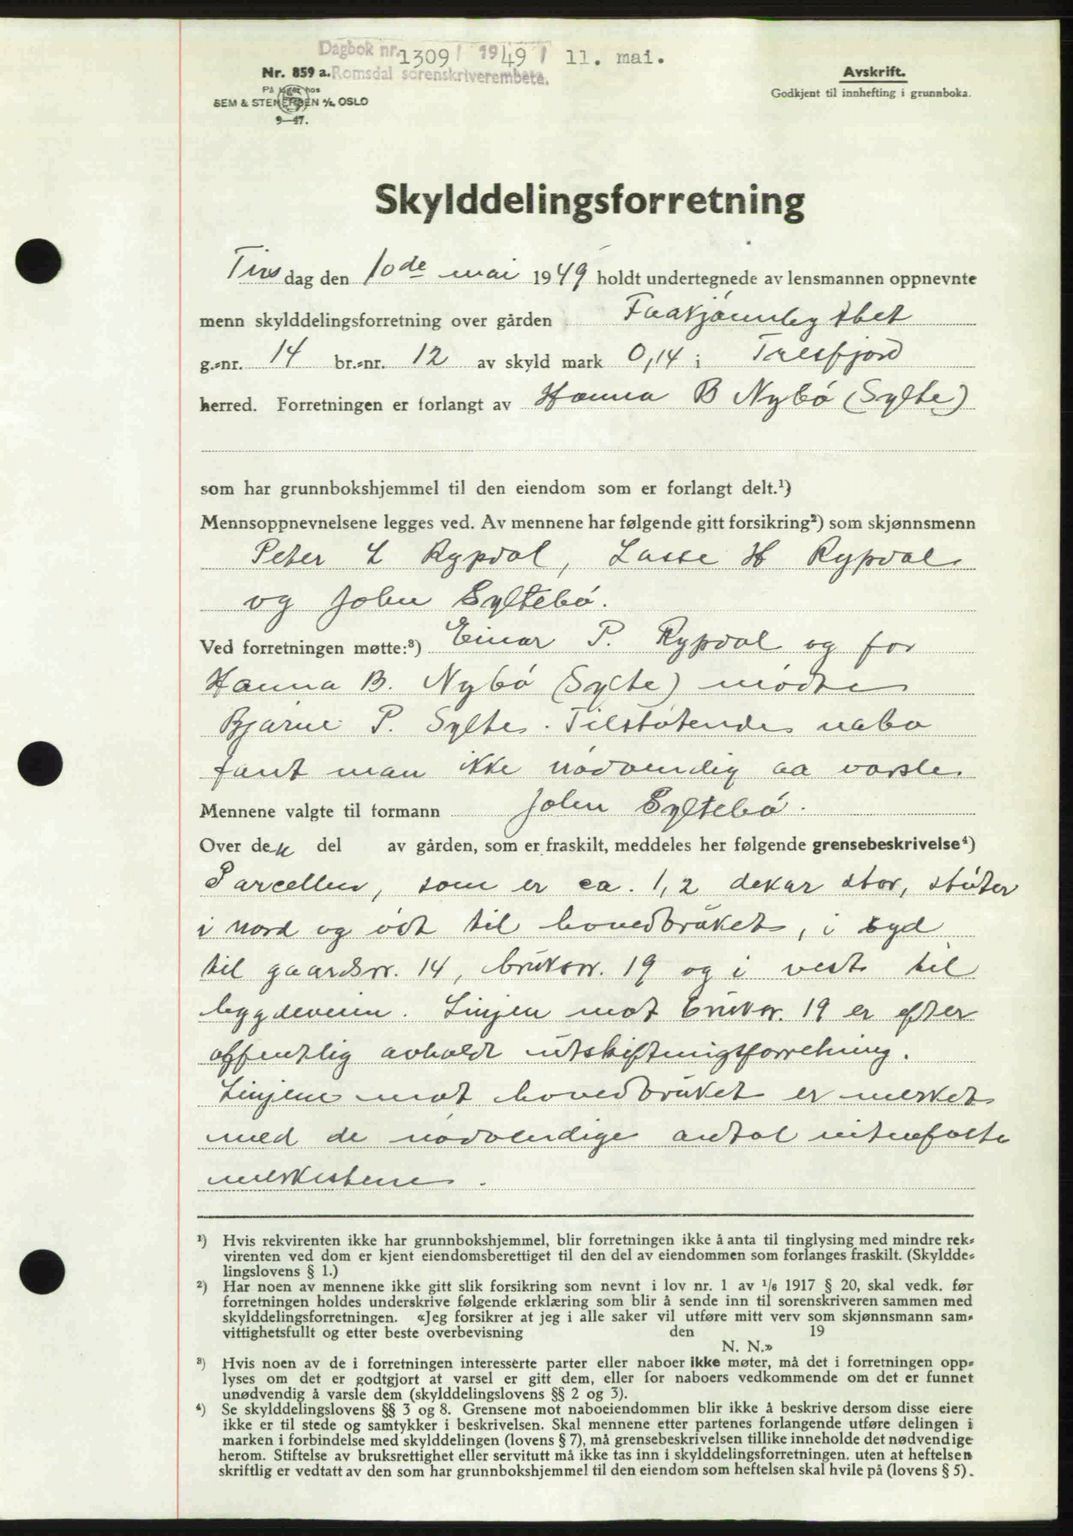 Dagbok nr. 1309 / 1949 / 11. mai.
Romsdal sorenskriverembete.
Nr. 859 a.
På lager hos
SEM & STENERSEN A/S, OSLO
9—47.
Avskrift.
Godkjent til innhefting i grunnboka.
Skylddelingsforretning
Tirsdag den 10de mai 1949 holdt undertegnede av lensmannen oppnevnte
menn skylddelingsforretning over gården
g.-nr. 14 br.-nr. 12 av skyld mark 0,14 i Tresfjord
herred. Forretningen er forlangt av Hanna B Nybø (Sylte)
som har grunnbokshjemmel til den eiendom som er forlangt delt.¹)
Mennsoppnevnelsene legges ved. Av mennene har følgende gitt forsikring²) som skjønnsmenn
Peter L Rypdal, Lasse H Rypdal
og John Syltebø.
Ved forretningen møtte:³) Einar P. Rypdal og for
Hanna B. Nybø (Sylte) mødte
Bjarne P. Sylte. Tilstøtende nabo
fant man ikke nødvendig aa varsle.
Mennene valgte til formann John Syltebø.
Over den del av gården, som er fraskilt, meddeles her følgende grensebeskrivelse⁴)
Parcellen, som er ca. 1,2 dekar stor, støter
i nord og øst til hovedbruket, i syd
til gaardsnr. 14, bruksnr. 19 og i vest til
bygdeveien. Linjen mot bruksnr. 19 er efter
offentlig avholdt utskiftningsforretning.
Linjene mot hovedbruket er merket
med de nødvendige antal
merkestene.
¹) Hvis rekvirenten ikke har grunnbokshjemmel, blir forretningen ikke å anta til tinglysing med mindre rek-
virenten ved dom er kjent eiendomsberettiget til den del av eiendommen som forlanges fraskilt. (Skyldde-
lingslovens § 1.)
²) Har noen av mennene ikke gitt slik forsikring som nevnt i lov nr. 1 av ¹/₆ 1917 § 20, skal vedk. før
forretningen holdes underskrive følgende erklæring som blir å sende inn til sorenskriveren sammen med
skylddelingsforretningen. «Jeg forsikrer at jeg i alle saker vil utføre mitt verv som skjønnsmann sam-
vittighetsfullt og etter beste overbevisning den 19
N. N.»
³) Hvis noen av de i forretningen interesserte parter eller naboer ikke møter, må det i forretningen opp-
lyses om det er godtgjort at varsel er gitt dem, eller for naboers vedkommende om det er funnet
unødvendig å varsle dem (skylddelingslovens §§ 2 og 3).
⁴) Se skylddelingslovens §§ 3 og 8. Grensene mot naboeiendommen blir ikke å beskrive dersom disse eiere
ikke er til stede og samtykker i beskrivelsen. Skal mennene etter partenes forlangende utføre delingen i
marken i forbindelse med skylddelingen (lovens § 7), må grensebeskrivelsen tillike inneholde det nødvendige
herom. Stiftelse av bruksrettighet eller servitutt må ikke tas inn i skylddelingsforretningen, uten at heftelsen
skriftlig er vedtatt av den som har grunnbokshjemmel til den eiendom som heftelsen skal hvile på (lovens § 5).